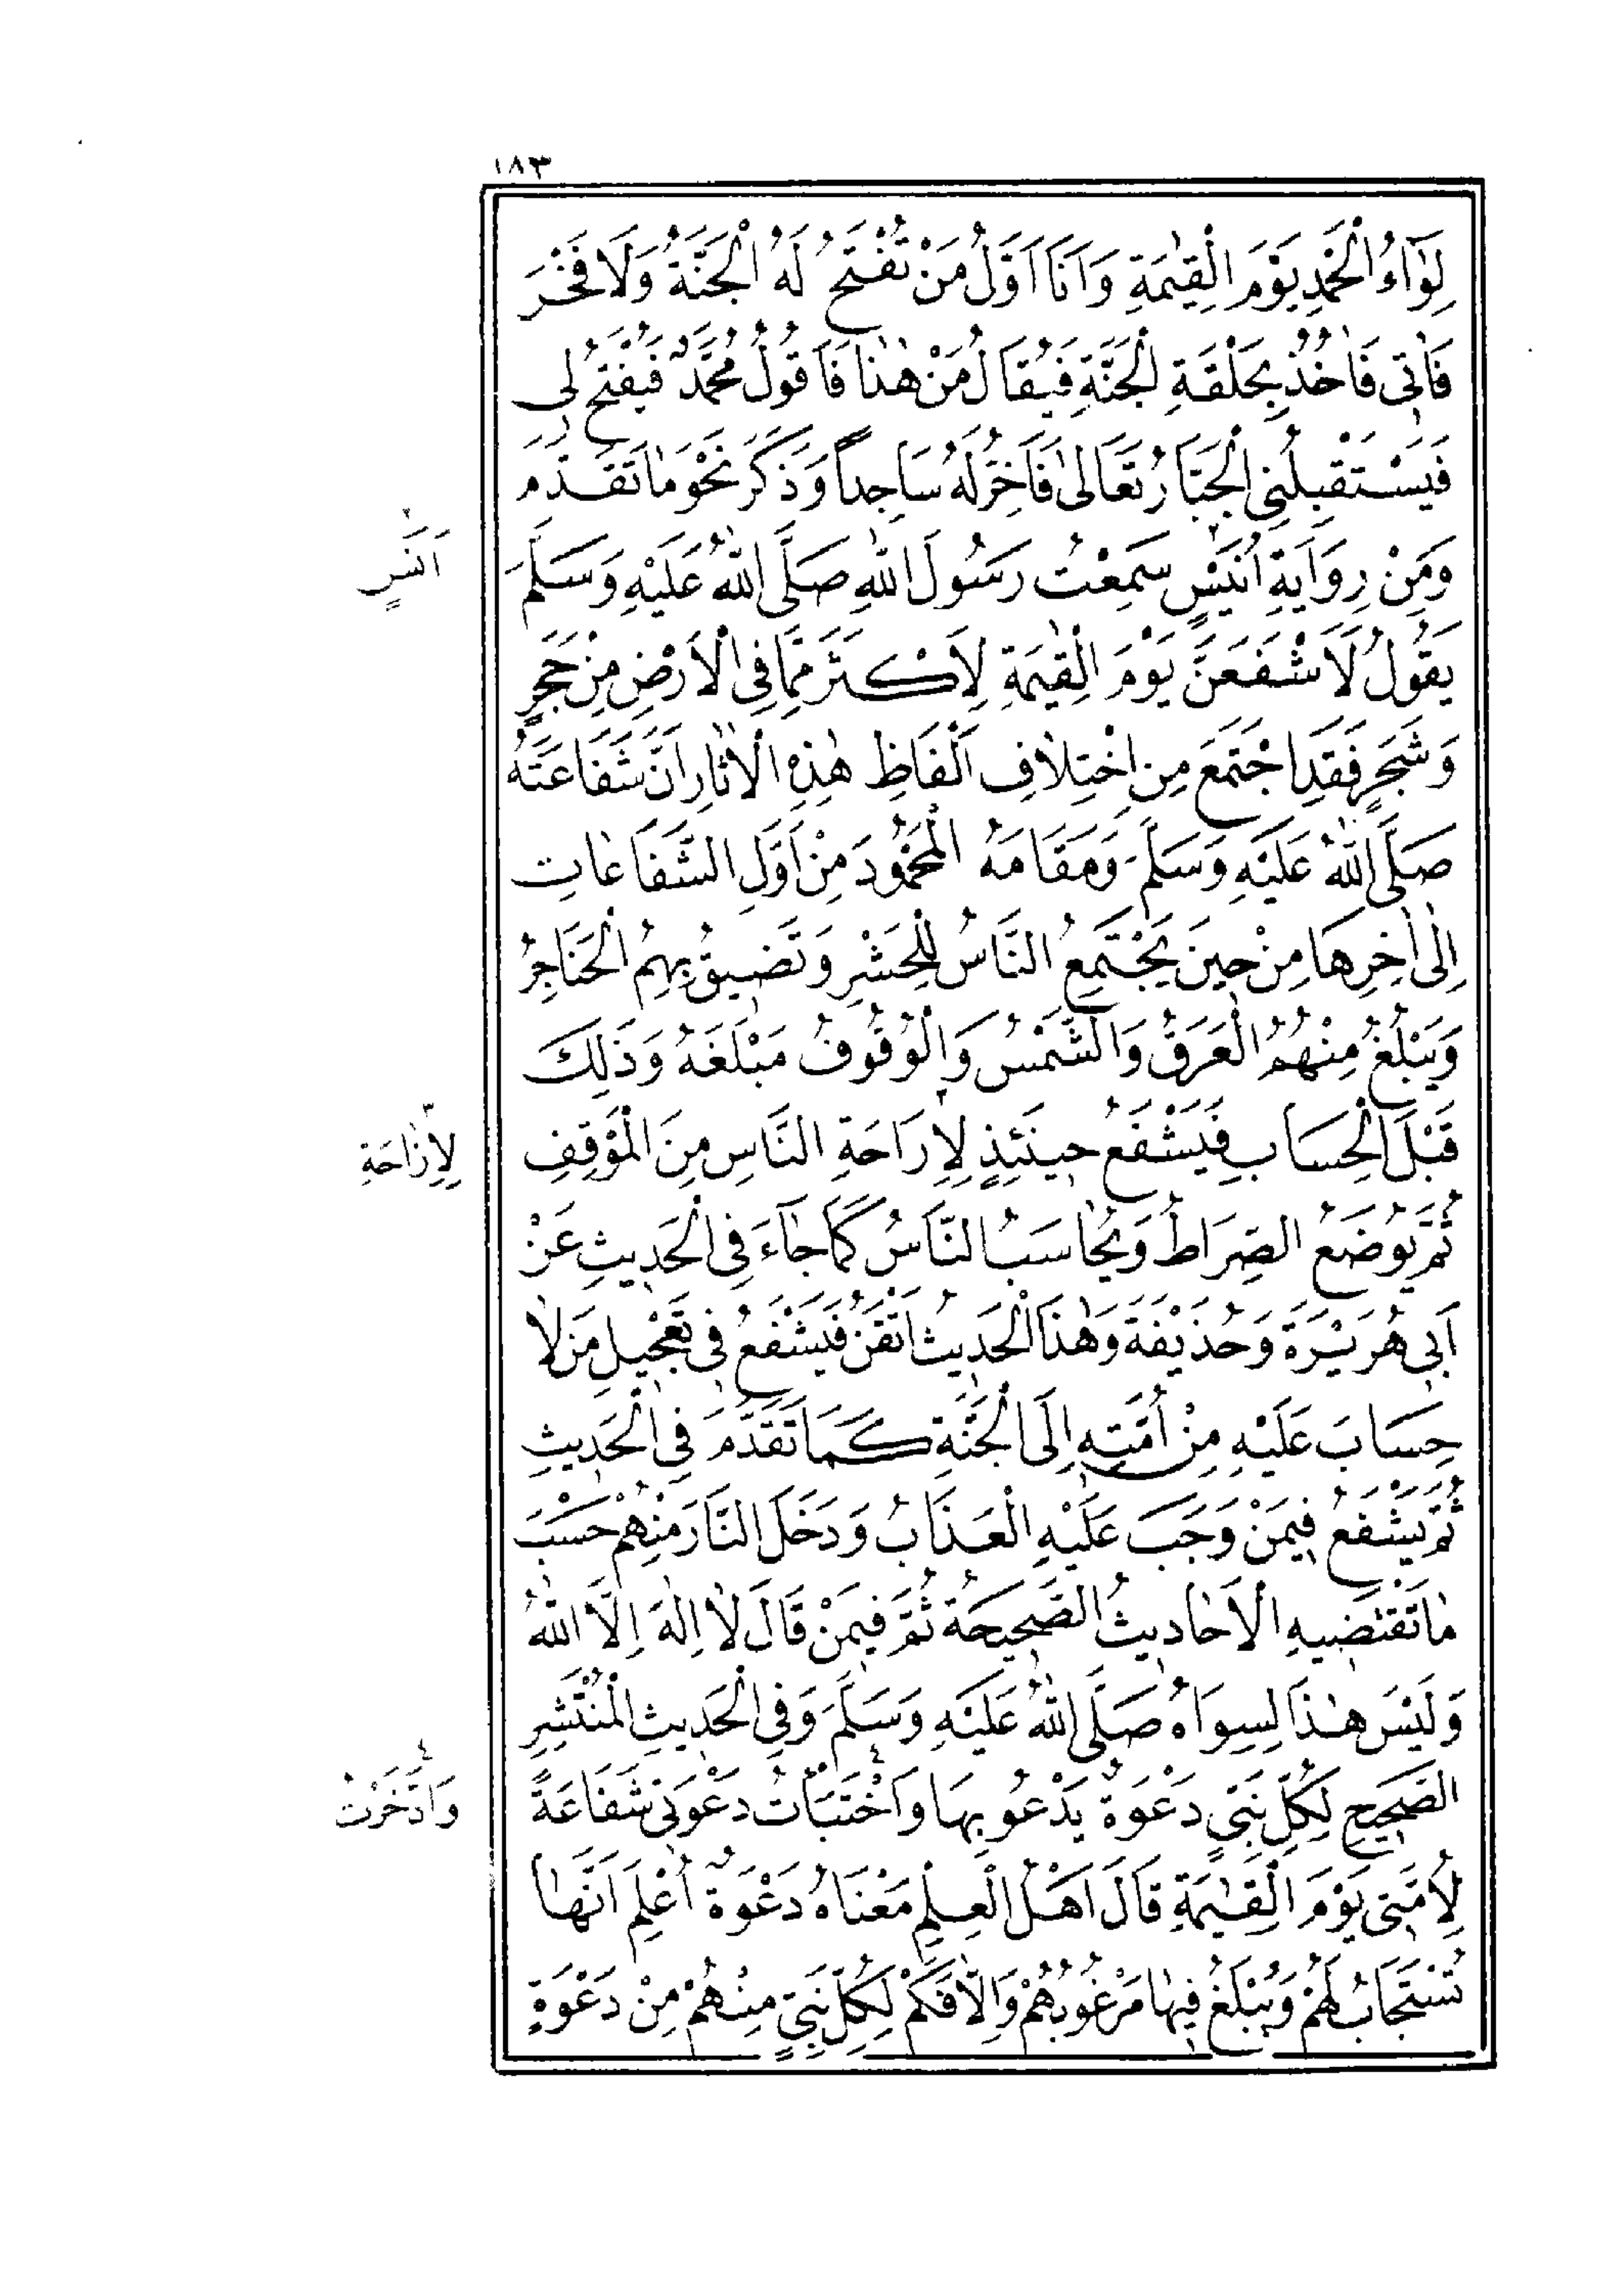 ١٨٣
لِوَآءُ الْحَمْدِ يَوْمَ الْقِيٰمَةِ وَاَنَا اَوَّلُ مَنْ تُفْتَحُ لَهُ الْجَنَّةُ وَلَا فَخْرَ
فَاٰتِى فَاٰخُذُ بِحَلْقَةِ الْجَنَّةِ فَيُقَالُ مَنْ هٰذَا فَاَقُولُ مُحَمَّدٌ فَيُفْتَحُ لِى
فَيَسْتَقْبِلُنِى الْجَبَّارُ تَعَالٰى فَاَخِرُّ لَهُ سَاجِداً وَذَكَرَ نَحْوَ مَا تَقَدَّمَ
وَمِنْ رِوَايَةِ اُنَيْسٍ سَمِعْتُ رَسُولَ اللّٰهِ صَلَّى اللّٰهُ عَلَيْهِ وَسَلَّمَ
اَنَسٍ
يَقُولُ لَاَشْفَعَنَّ يَوْمَ الْقِيٰمَةِ لِاَكْثَرَ مِمَّا فِى الْاَرْضِ مِنْ حَجَرٍ
وَشَجَرٍ فَقَدِ اجْتَمَعَ مِنِ اخْتِلَافِ اَلْفَاظِ هٰذِهِ الْاٰثَارِ اَنَّ شَفَاعَتَهُ
صَلَّى اللّٰهُ عَلَيْهِ وَسَلَّمَ وَمَقَامَهُ الْمَحْمُودَ مِنْ اَوَّلِ الشَّفَاعَاتِ
اِلٰى اٰخِرِهَا مِنْ حِينَ يَجْتَمِعُ النَّاسُ لِلْحَشْرِ وَتَضِيقُ بِهِمُ الْحَنَاجِرُ
وَيَبْلُغُ مِنْهُمُ الْعَرَقُ وَالشَّمْسُ وَالْوُقُوفُ مَبْلَغَهُ وَذَلِكَ
قَبْلَ الْحِسَابِ فَيَشْفَعُ حِينَئِذٍ لِاِرَاحَةِ النَّاسِ مِنَ الْمَوْقِفِ
٣ لِاِزَاحَةِ
ثُمَّ يُوضَعُ الصِّرَاطُ وَيُحَاسَبُ النَّاسُ كَمَا جَآءَ فِى الْحَدِيثِ عَنْ
اَبِى هُرَيْرَةَ وَحُذَيْفَةَ وَهٰذَا الْحَدِيثُ اَتْقَنُ فَيَشْفَعُ فِى تَعْجِيلِ مَنْ لَا
حِسَابَ عَلَيْهِ مِنْ اُمَّتِهِ اِلَى الْجَنَّةِ كَمَا تَقَدَّمَ فِى الْحَدِيثِ
ثُمَّ يَشْفَعُ فِيمَنْ وَجَبَ عَلَيْهِ الْعَذَابُ وَدَخَلَ النَّارَ مِنْهُمْ حَسْبَ
مَا تَقْتَضِيهِ الْاَحَادِيثُ الصَّحِيحَةُ ثُمَّ فِيمَنْ قَالَ لَا اِلٰهَ اِلَّا اللّٰهُ
وَلَيْسَ هٰذَا لِسِوَاهُ صَلَّى اللّٰهُ عَلَيْهِ وَسَلَّمَ وَفِى الْحَدِيثِ الْمُنْتَشِرِ
الصَّحِيحِ لِكُلِّ نَبِىٍّ دَعْوَةٌ يَدْعُو بِهَا وَاخْتَبَأْتُ ٤ دَعْوَتِى شَفَاعَةً
٤ وَادَّخَرْتُ
لِاُمَّتِى يَوْمَ الْقِيٰمَةِ قَالَ اَهْلُ الْعِلْمِ مَعْنَاهُ دَعْوَةٌ اُعْلِمَ اَنَّهَا
تُسْتَجَابُ لَهُمْ وَيُبْلَغُ فِيهَا مَرْغُوبُهُمْ وَاِلَّا فَكَمْ لِكُلِّ نَبِىٍّ مِنْهُمْ مِنْ دَعْوَةٍ